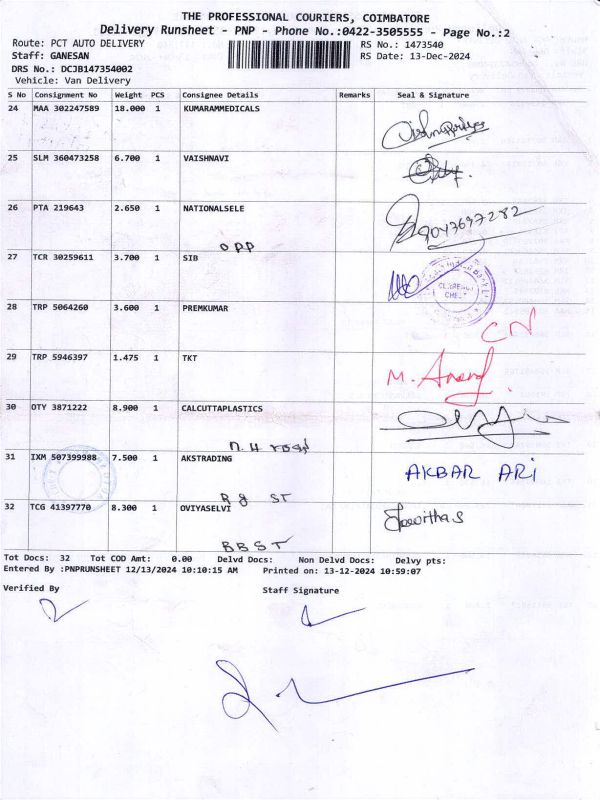 THE PROFESSIONAL COURIERS, COIMBATORE
Delivery Runsheet - PNP - Phone No.:0422-3505555 - Page No.:2
Route: PCT AUTO DELIVERY RS No.: 1473540
Staff: GANESAN RS Date: 13-Dec-2024
DRS No.: DCJB147354002
Vehicle: Van Delivery
S No Consignment No Weight PCS Consignee Details Remarks Seal & Signature
24 MAA 302247589 18.000 1 KUMARAMMEDICALS
25 SLM 360473258 6.700 1 VAISHNAVI
26 PTA 219643 2.650 1 NATIONALSELE 9047697282
opp
27 TCR 30259611 3.700 1 SIB
28 TRP 5064260 3.600 1 PREMKUMAR CN
29 TRP 5946397 1.475 1 TKT M. Anand
30 OTY 3871222 8.900 1 CALCUTTAPLASTICS
n.H road
31 IXM 507399988 7.500 1 AKSTRADING AKBAR ARi
R g ST
32 TCG 41397770 8.300 1 OVIYASELVI
BBST
Tot Docs: 32 Tot COD Amt: 0.00 Delvd Docs: Non Delvd Docs: Delvy pts:
Entered By :PNPRUNSHEET 12/13/2024 10:10:15 AM Printed on: 13-12-2024 10:59:07
Verified By Staff Signature